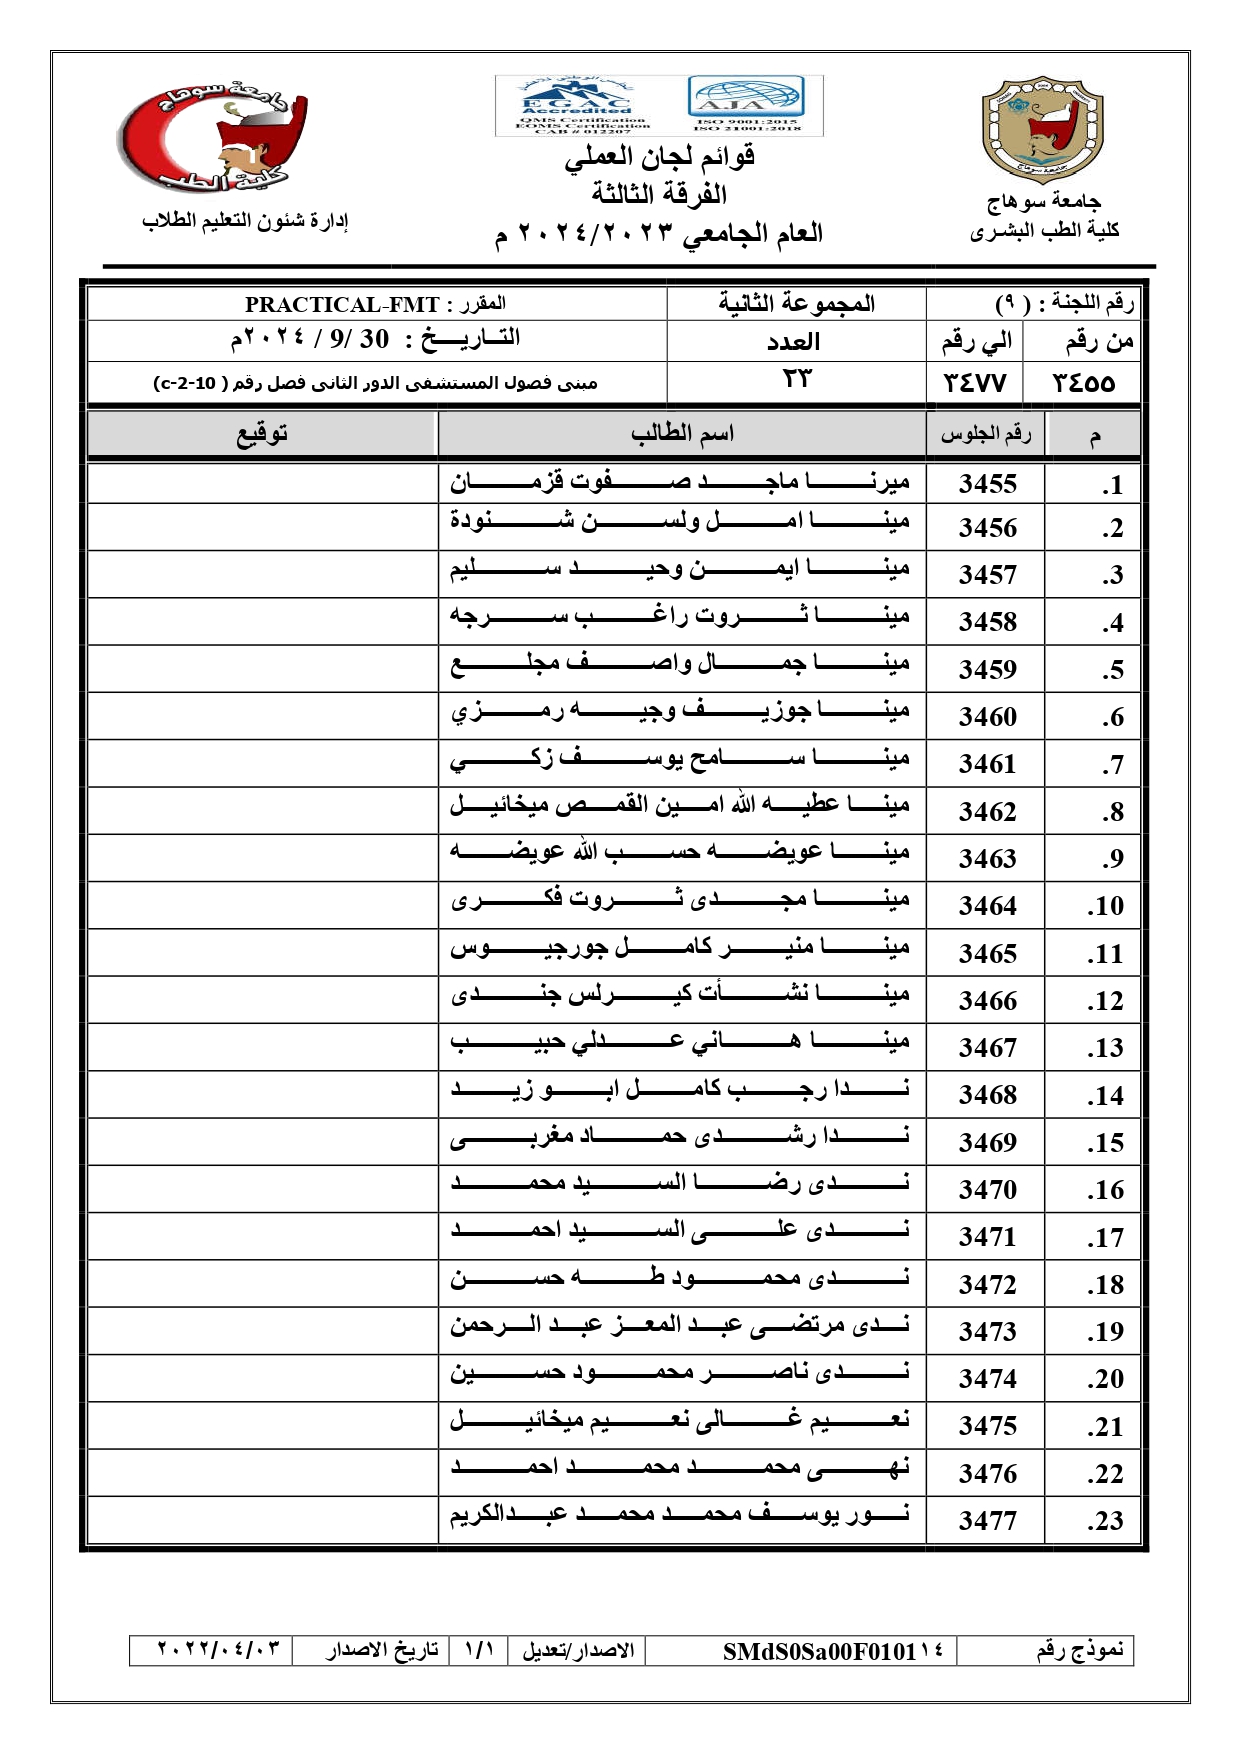 جامعة سوهاج
كلية الطب البشرى
EGAC
Accredited
QMS Certification
EOMS Certification
CAB # 012207
AJA
ISO 9001:2015
ISO 21001:2018
قوائم لجان العملي
الفرقة الثالثة
العام الجامعي ٢٠٢٤/٢٠٢٣ م
جامعة سوهاج
كلية الطب
إدارة شئون التعليم الطلاب
رقم اللجنة : ( ٩) المجموعة الثانية المقرر : PRACTICAL-FMT
من رقم الي رقم العدد التاريخ : 30 /9 / ٢٠٢٤م
٣٤٥٥ ٣٤٧٧ ٢٣ مبنى فصول المستشفى الدور الثانى فصل رقم ( c-2-10)
م رقم الجلوس اسم الطالب توقيع
1. 3455 ميرنا ماجد صفوت قزمان
2. 3456 مينا امل ولسن شنودة
3. 3457 مينا ايمن وحيد سليم
4. 3458 مينا ثروت راغب سرجه
5. 3459 مينا جمال واصف مجلع
6. 3460 مينا جوزيف وجيه رمزي
7. 3461 مينا سامح يوسف زكي
8. 3462 مينا عطيه الله امين القمص ميخائيل
9. 3463 مينا عويضه حسب الله عويضه
10. 3464 مينا مجدى ثروت فكرى
11. 3465 مينا منير كامل جورجيوس
12. 3466 مينا نشأت كيرلس جندى
13. 3467 مينا هاني عدلي حبيب
14. 3468 ندا رجب كامل ابو زيد
15. 3469 ندا رشدى حماد مغربى
16. 3470 ندى رضا السيد محمد
17. 3471 ندى على السيد احمد
18. 3472 ندى محمود طه حسن
19. 3473 ندى مرتضى عبد المعز عبد الرحمن
20. 3474 ندى ناصر محمود حسين
21. 3475 نعيم غالى نعيم ميخائيل
22. 3476 نهى محمد محمد احمد
23. 3477 نور يوسف محمد محمد عبدالكريم
نموذج رقم SMdS0Sa00F0101١٤ الاصدار/تعديل ١/١ تاريخ الاصدار ٢٠٢٢/٠٤/٠٣